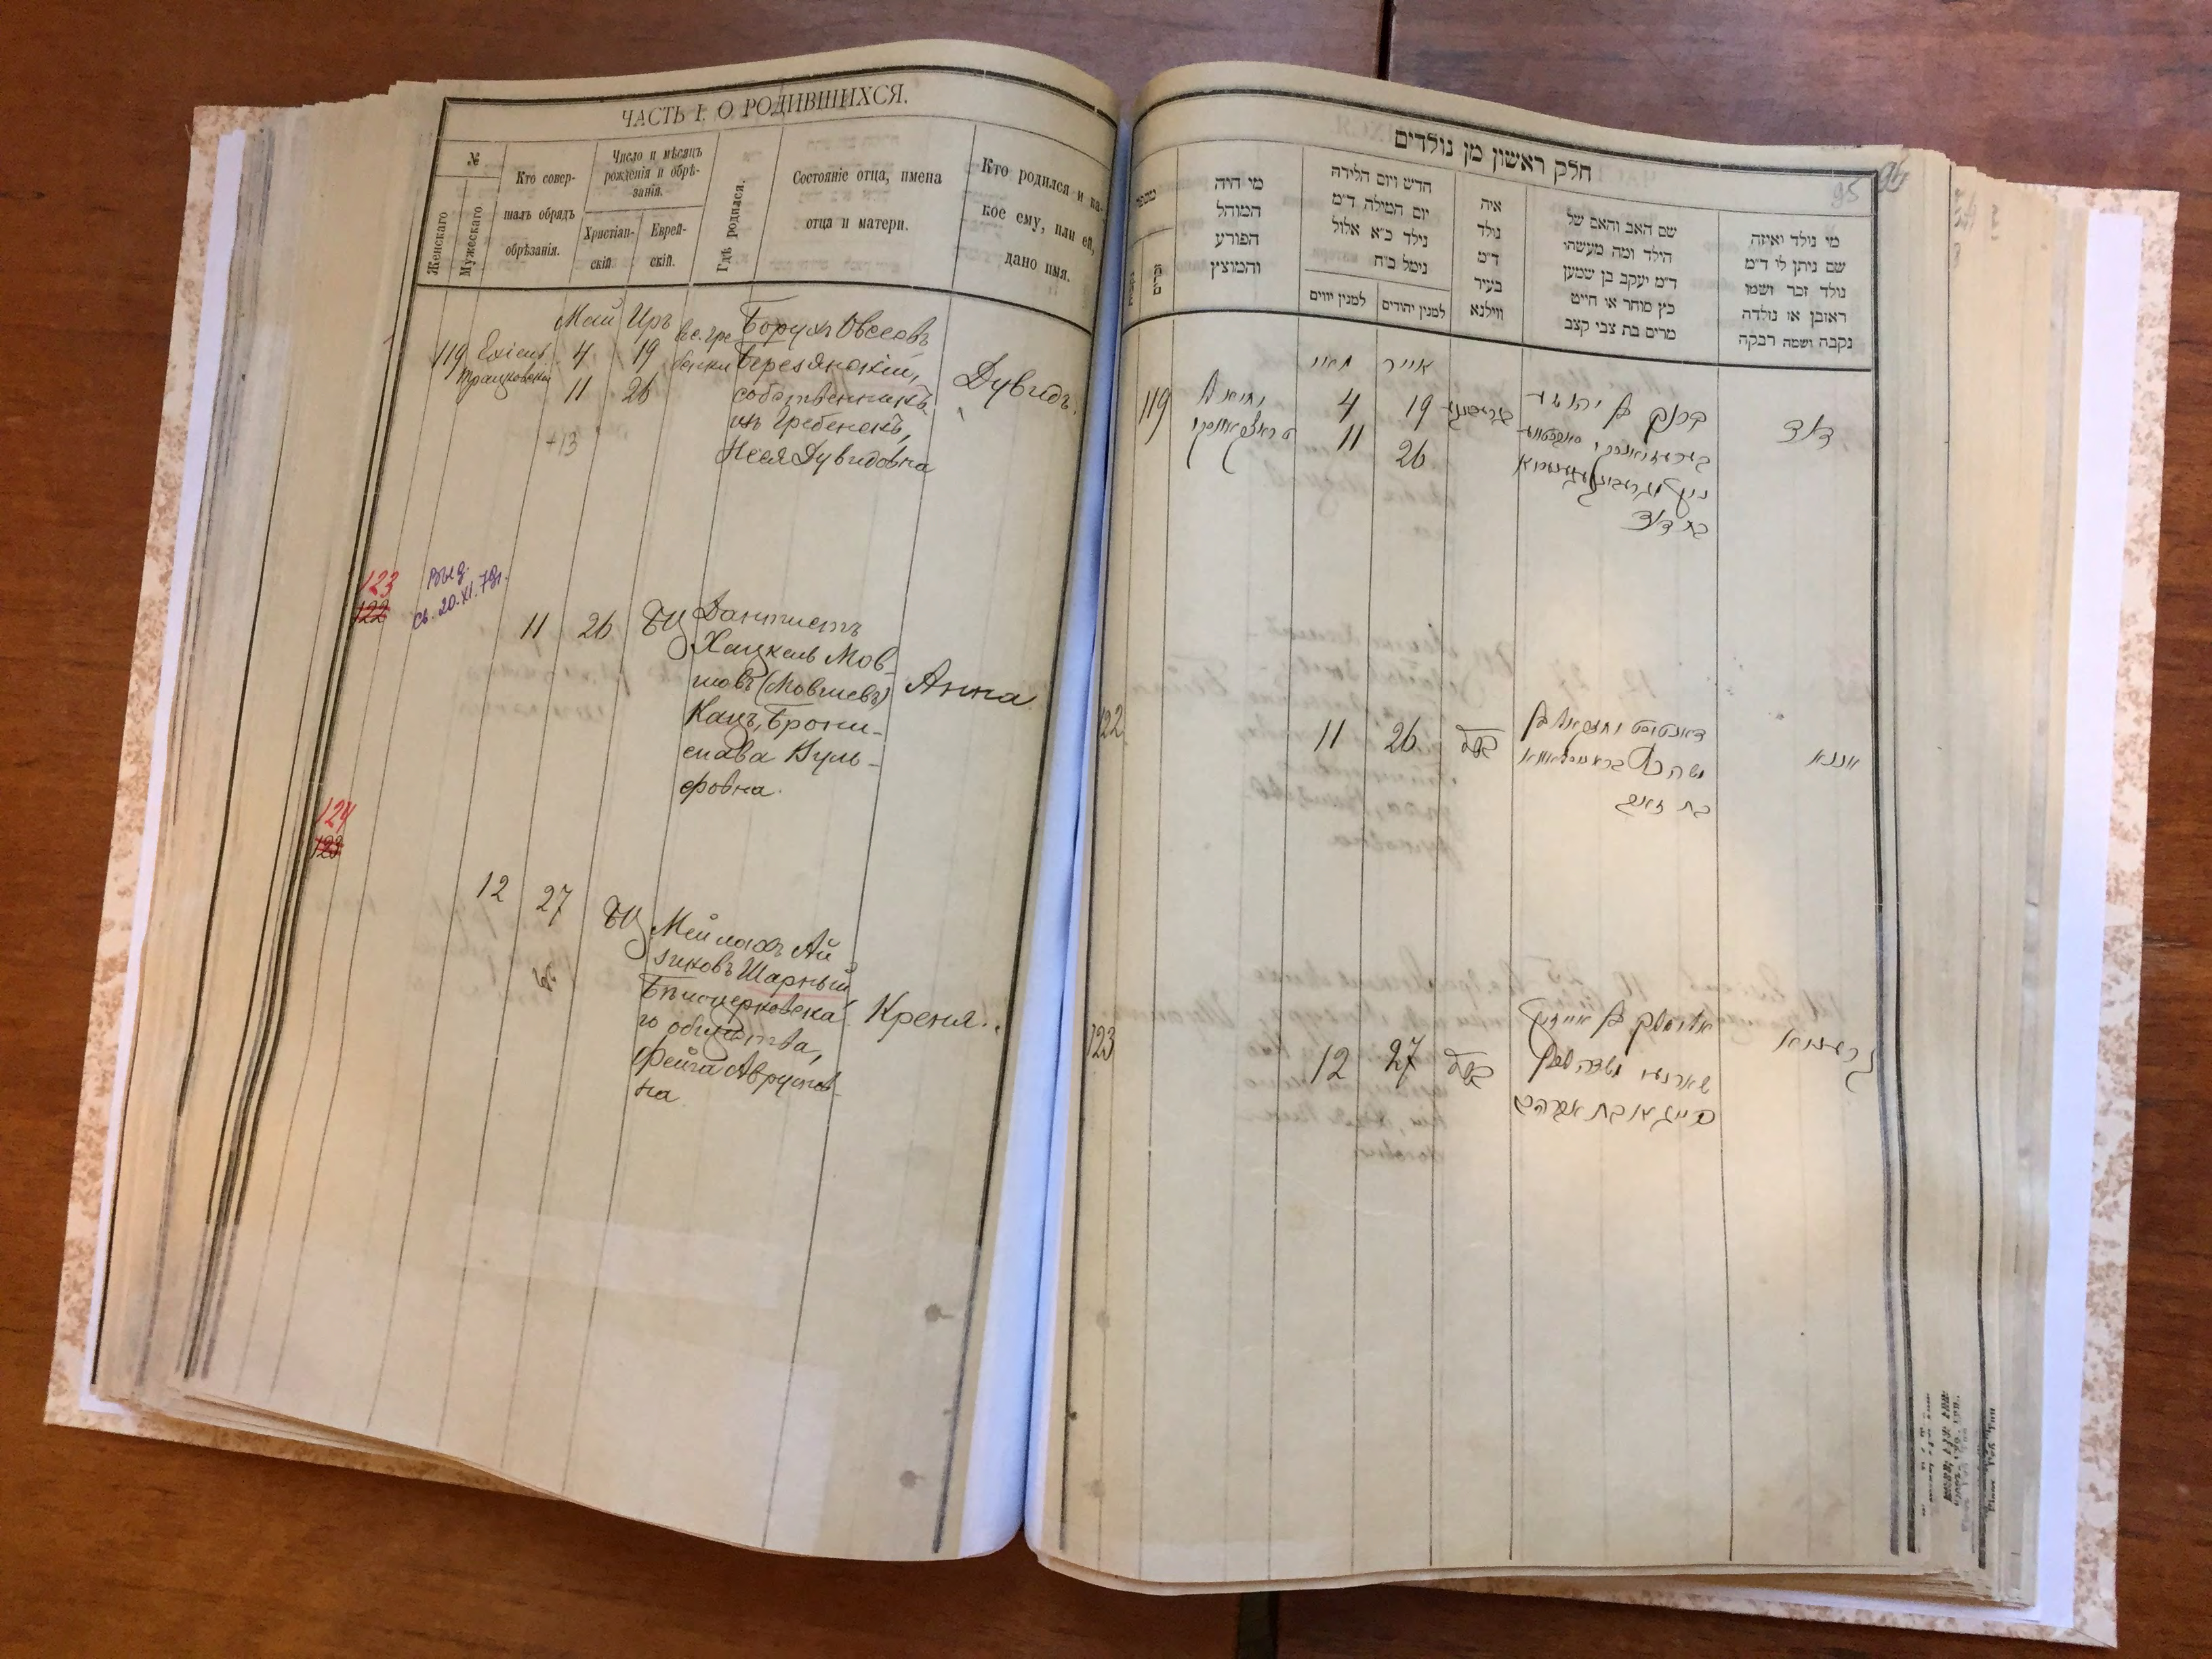 ЧАСТЬ I. О РОДИВШИХСЯ.
№
Женскаго
Мужескаго
Кто совер-
шалъ обрядъ
обрѣзанія.
Число и мѣсяцъ
рожденія и обрѣ-
занія.
Христіан-
скій.
Еврей-
скій.
Гдѣ родился.
Состояніе отца, имена
отца и матери.
Кто родился и ка-
кое ему, или ей,
дано имя.
Май Иръ
119
4
19
11
26
+13
Борухъ Овсеовъ
Березянскій,
собственникъ
изъ Гребенокъ,
Неся Дувидовна
Дувидъ.
123
122
Выд.
св. 20.XI.79г.
11
26
БЦ
Дантистъ
Хацкель Мов
шовъ (Мовшевъ)
Кацъ, Брони-
слава Вуль-
фовна.
Анна
124
123
12
27
БЦ
Мейлахъ Ай
зиковъ Шарный
Бѣлоцерковска
го общества,
Фейга Аврумов-
на
Креня.
חלק ראשון מן נולדים
95
מספר
נקבות
זכרים
מי היה
המוהל
הפורע
והמוצץ
חדש ויום הלידה
יום המילה ד״מ
נילד כ״א אלול
נימל כ״ח
למנין יווים
למנין יהודים
איה
נולד
ד״מ
בעיר
ווילנא
שם האב והאם של
הילד ומה מעשהו
ד״מ יעקב בן שמען
כץ סוחר או חייט
מרים בת צבי קצב
מי נולד ואיזה
שם ניתן לי ד״מ
נולד זכר ושמו
ראובן או נולדה
נקבה ושמה רבקה
מאיי
אייר
119
4
19
11
26
בת דוד
דוד
122
11
26
בת זאב
אננא
123
12
27
בת אברהם